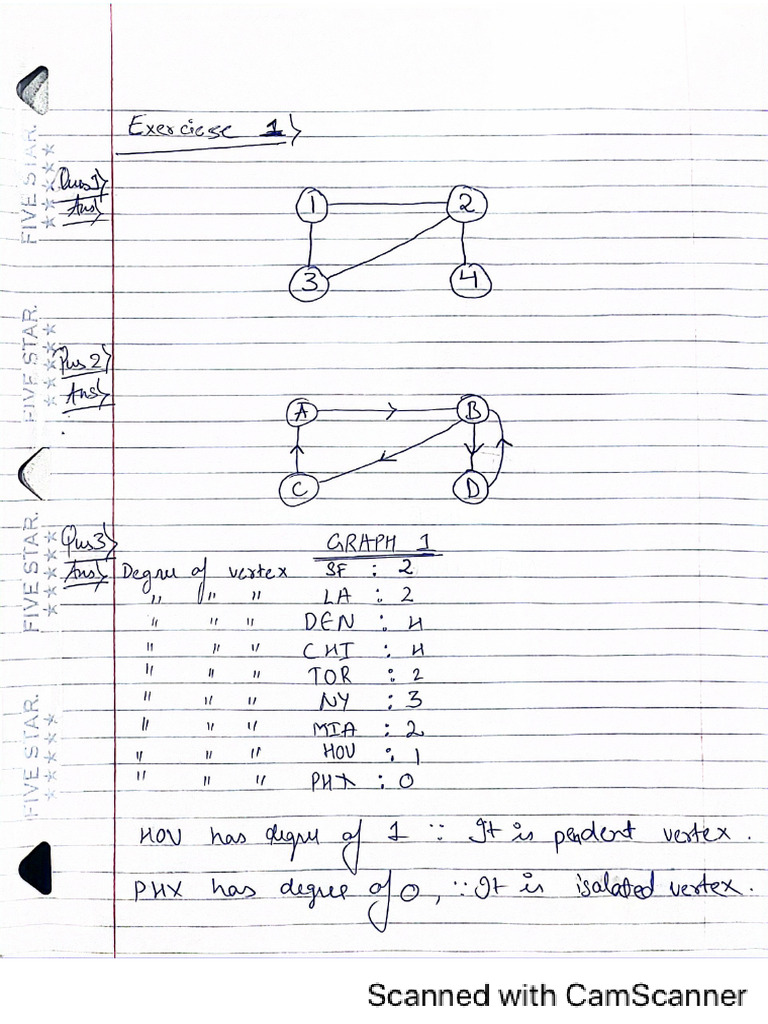 Exerciese 1
Ques1
Ans
1 2
3 4
Qus2
Ans
A B
C D
Qus3
GRAPH 1
Ans Degree of vertex SF : 2
" " " LA : 2
" " " DEN : 4
" " " CHI : 4
" " " TOR : 2
" " " NY : 3
" " " MIA : 2
" " " HOU : 1
" " " PHX : 0
HOU has degree of 1 ∵ It is pendent vertex.
PHX has degree of 0, ∵ It is isalated vertex.
FIVE STAR.
FIVE STAR.
FIVE STAR.
FIVE STAR.
Scanned with CamScanner